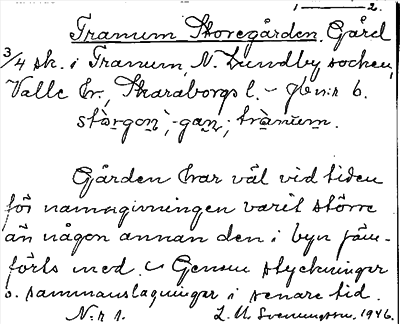 1 — 2.
Tranum Storegården. Gård
3/4 sk. i Tranum, N. Lundby socken,
Valle hr., Skaraborgs l. – jbn:r 6.
stòrgoṇ, -gaṇ; trànum.
Gården har väl vid tiden
för namngivningen varit större
än någon annan den i byn jäm-
förts med. Genom styckningar
o. sammanslagningar i senare tid.
N:r 1. 1946.